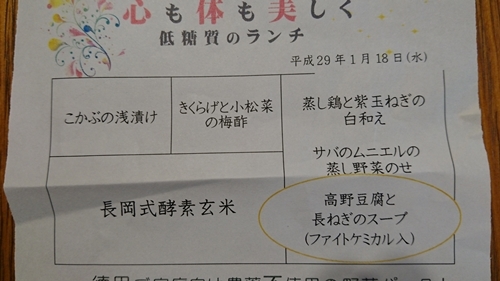 心も体も美しく
低糖質のランチ
平成29年1月18日(水)
こかぶの浅漬け
きくらげと小松菜
の梅酢
蒸し鶏と紫玉ねぎの
白和え
サバのムニエルの
蒸し野菜のせ
長岡式酵素玄米
高野豆腐と
長ねぎのスープ
(ファイトケミカル入)